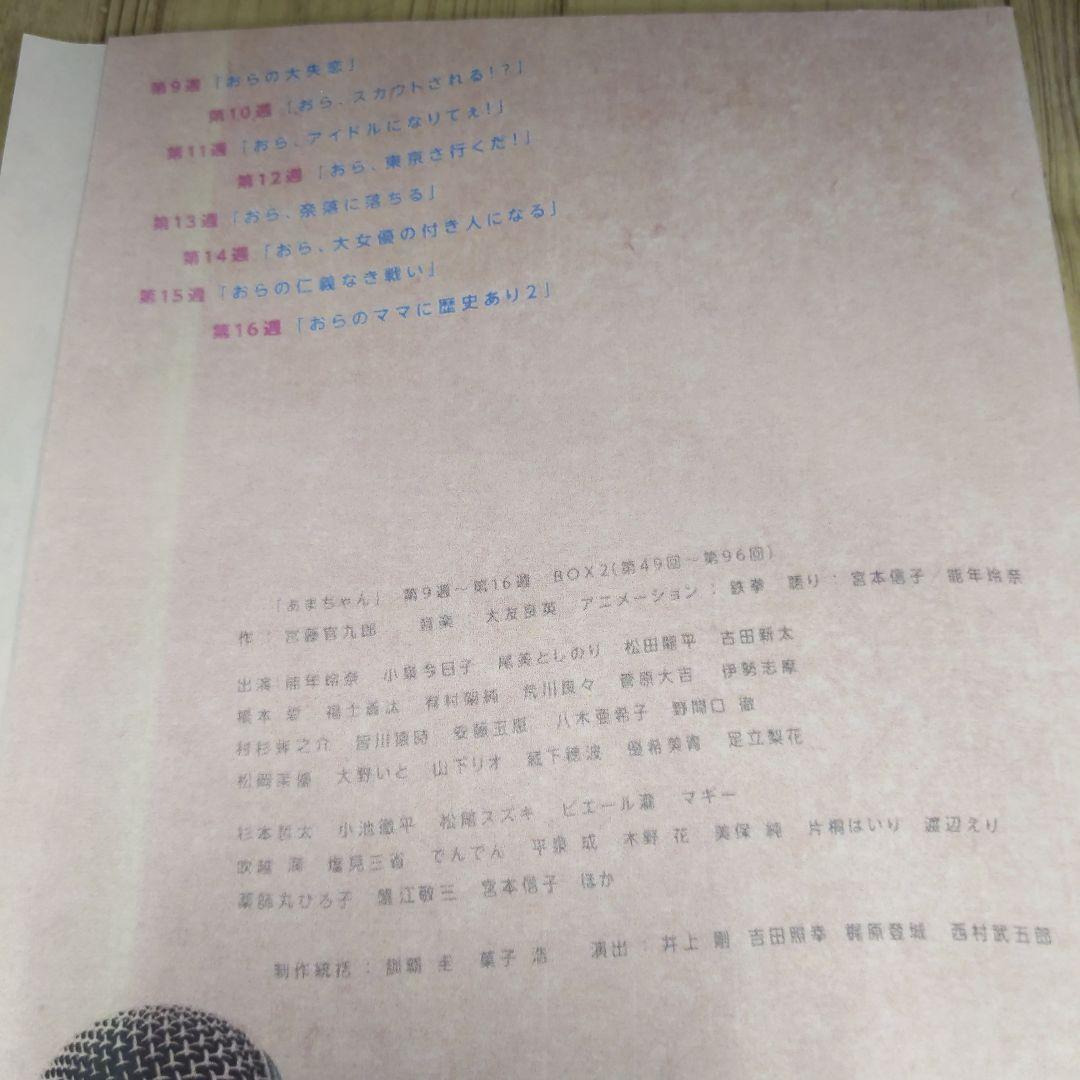 第9週「おらの大失恋」
第10週「おら、スカウトされる!?」
第11週「おら、アイドルになりてぇ!」
第12週「おら、東京さ行くだ!」
第13週「おら、奈落に落ちる」
第14週「おら、大女優の付き人になる」
第15週「おらの仁義なき戦い」
第16週「おらのママに歴史あり2」
「あまちゃん」 第9週～第16週 BOX2(第49回～第96回)
作：宮藤官九郎 音楽：大友良英 アニメーション：鉄拳 語り：宮本信子／能年玲奈
出演 能年玲奈 小泉今日子 尾美としのり 松田龍平 古田新太
橋本 愛 福士蒼汰 有村架純 荒川良々 菅原大吉 伊勢志摩
村杉蝉之介 皆川猿時 安藤玉恵 八木亜希子 野間口 徹
松岡茉優 大野いと 山下リオ 蔵下穂波 優希美青 足立梨花
杉本哲太 小池徹平 松尾スズキ ピエール瀧 マギー
吹越 満 塩見三省 でんでん 平泉 成 木野 花 美保 純 片桐はいり 渡辺えり
薬師丸ひろ子 蟹江敬三 宮本信子 ほか
制作統括：訓覇 圭 菓子 浩 演出：井上 剛 吉田照幸 梶原登城 西村武五郎